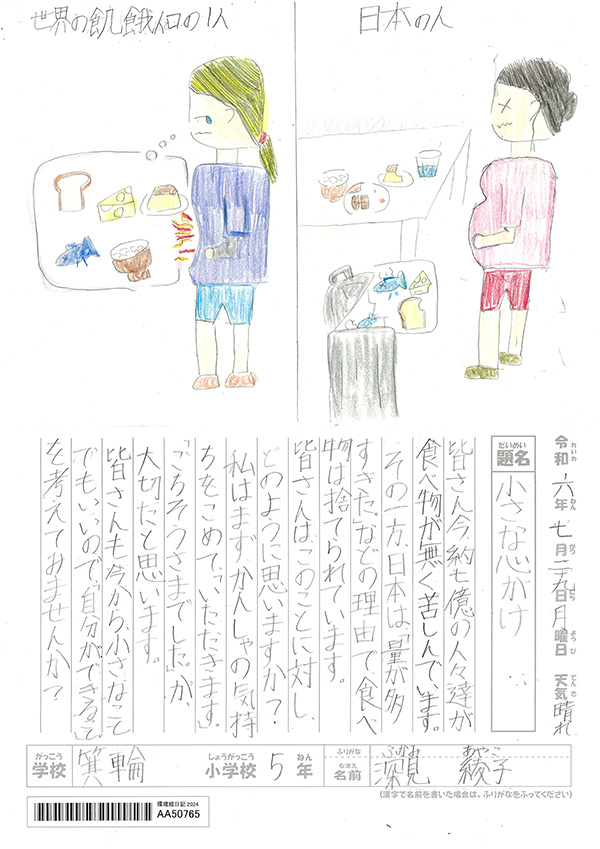 世界の飢餓人口の1人
日本の人
令和六年七月二九日月曜日 天気晴れ
れいわ ねん がつ にち ようび てんき
だいめい
題名
小さな心がけ
皆さん今、納七億の人々達が
食べ物が無く苦しんでいます。
その一方、日本は「量が多
すぎた」などの理由で食べ
物は捨てられています。
皆さんは、このことに対し、
どのように思いますか？
私はまず、かんしゃの気持
ちをこめて、「いただきます。」
「ごちそうさまでした。」が、
大切だと思います。
皆さんも今から、小さなこと
でもいいので、「自分ができること」。
を考えてみませんか？
がっこう
学校 箕輪
しょうがっこう ねん
小学校 5年
ふりがな ふかみ あやこ
なまえ
名前 深見 綾子
(漢字で名前を書いた場合は、ふりがなをふってください)
環境絵日記2024
AA50765